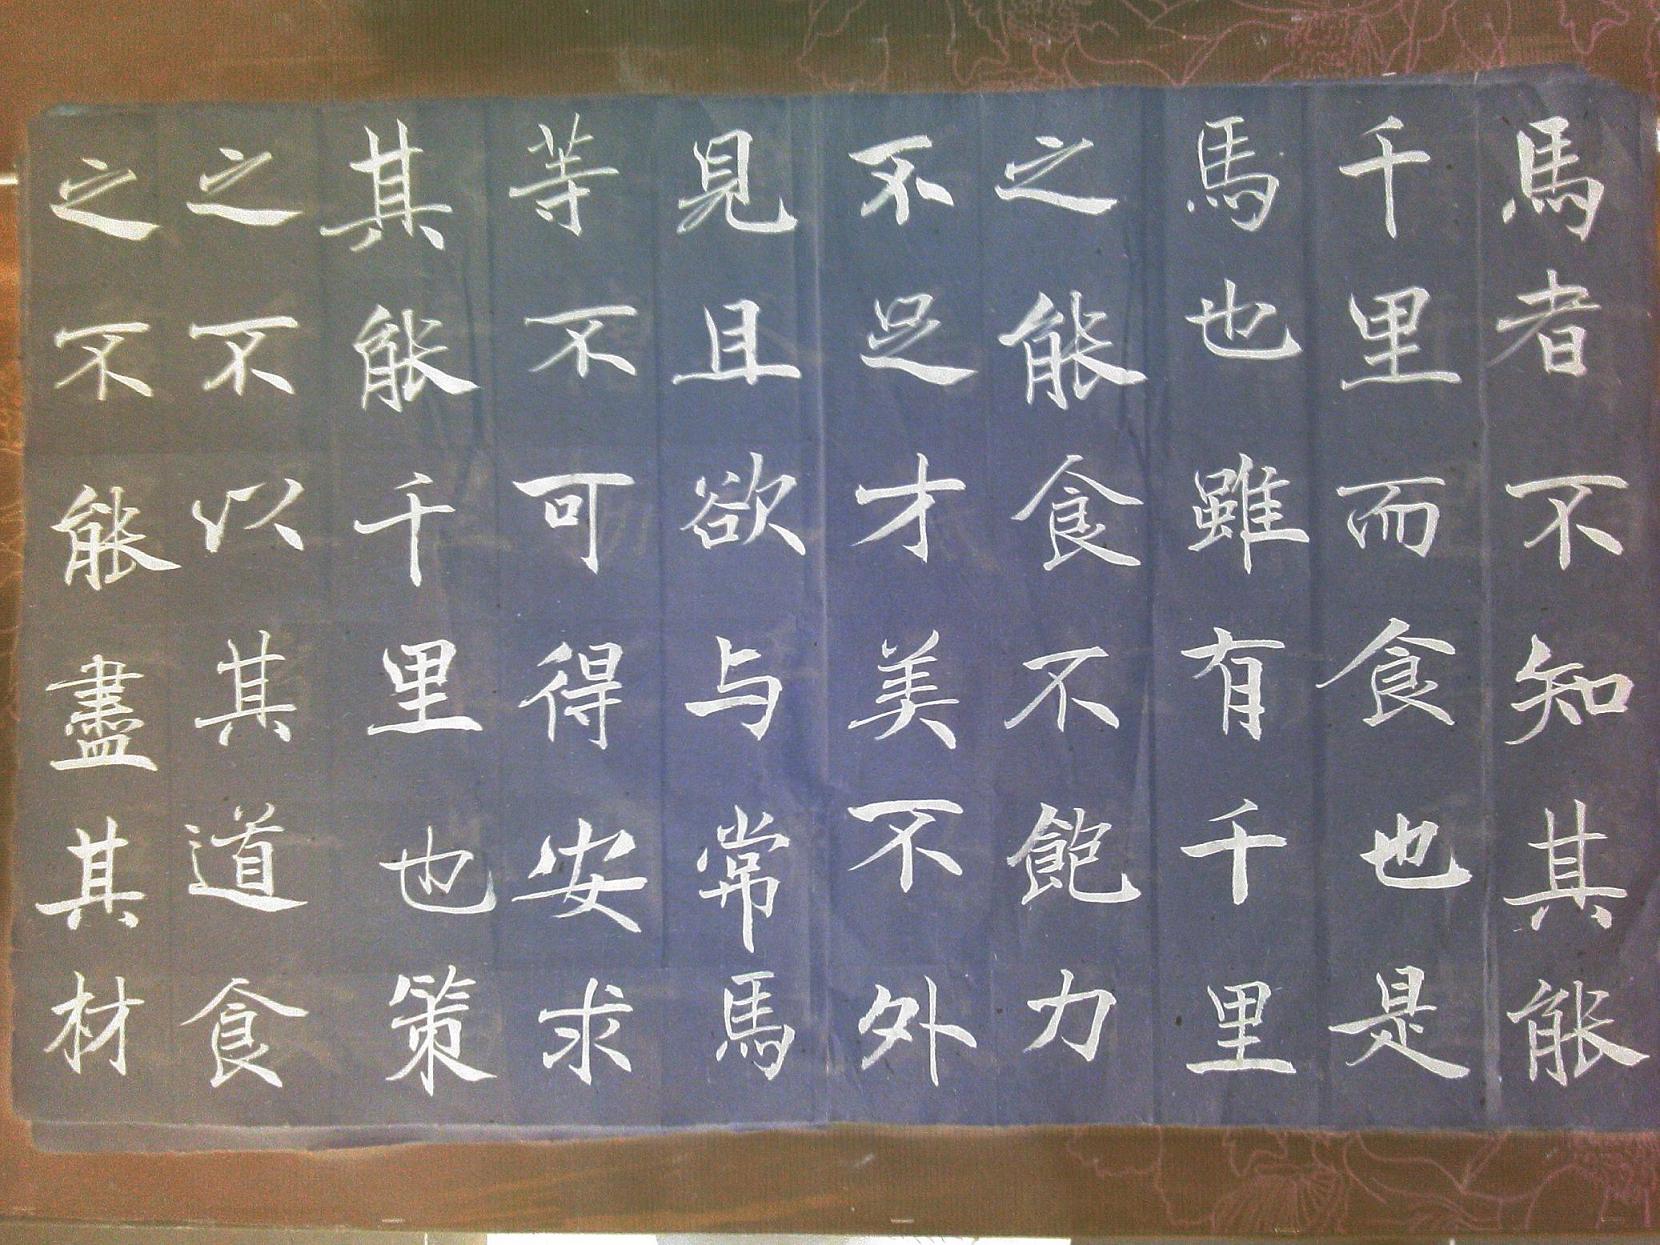 馬者不知其能
千里而食也是
馬也雖有千里
之能食不飽力
不足才美不外
見且欲与常馬
等不可得安求
其能千里也策
之不以其道食
之不能盡其材